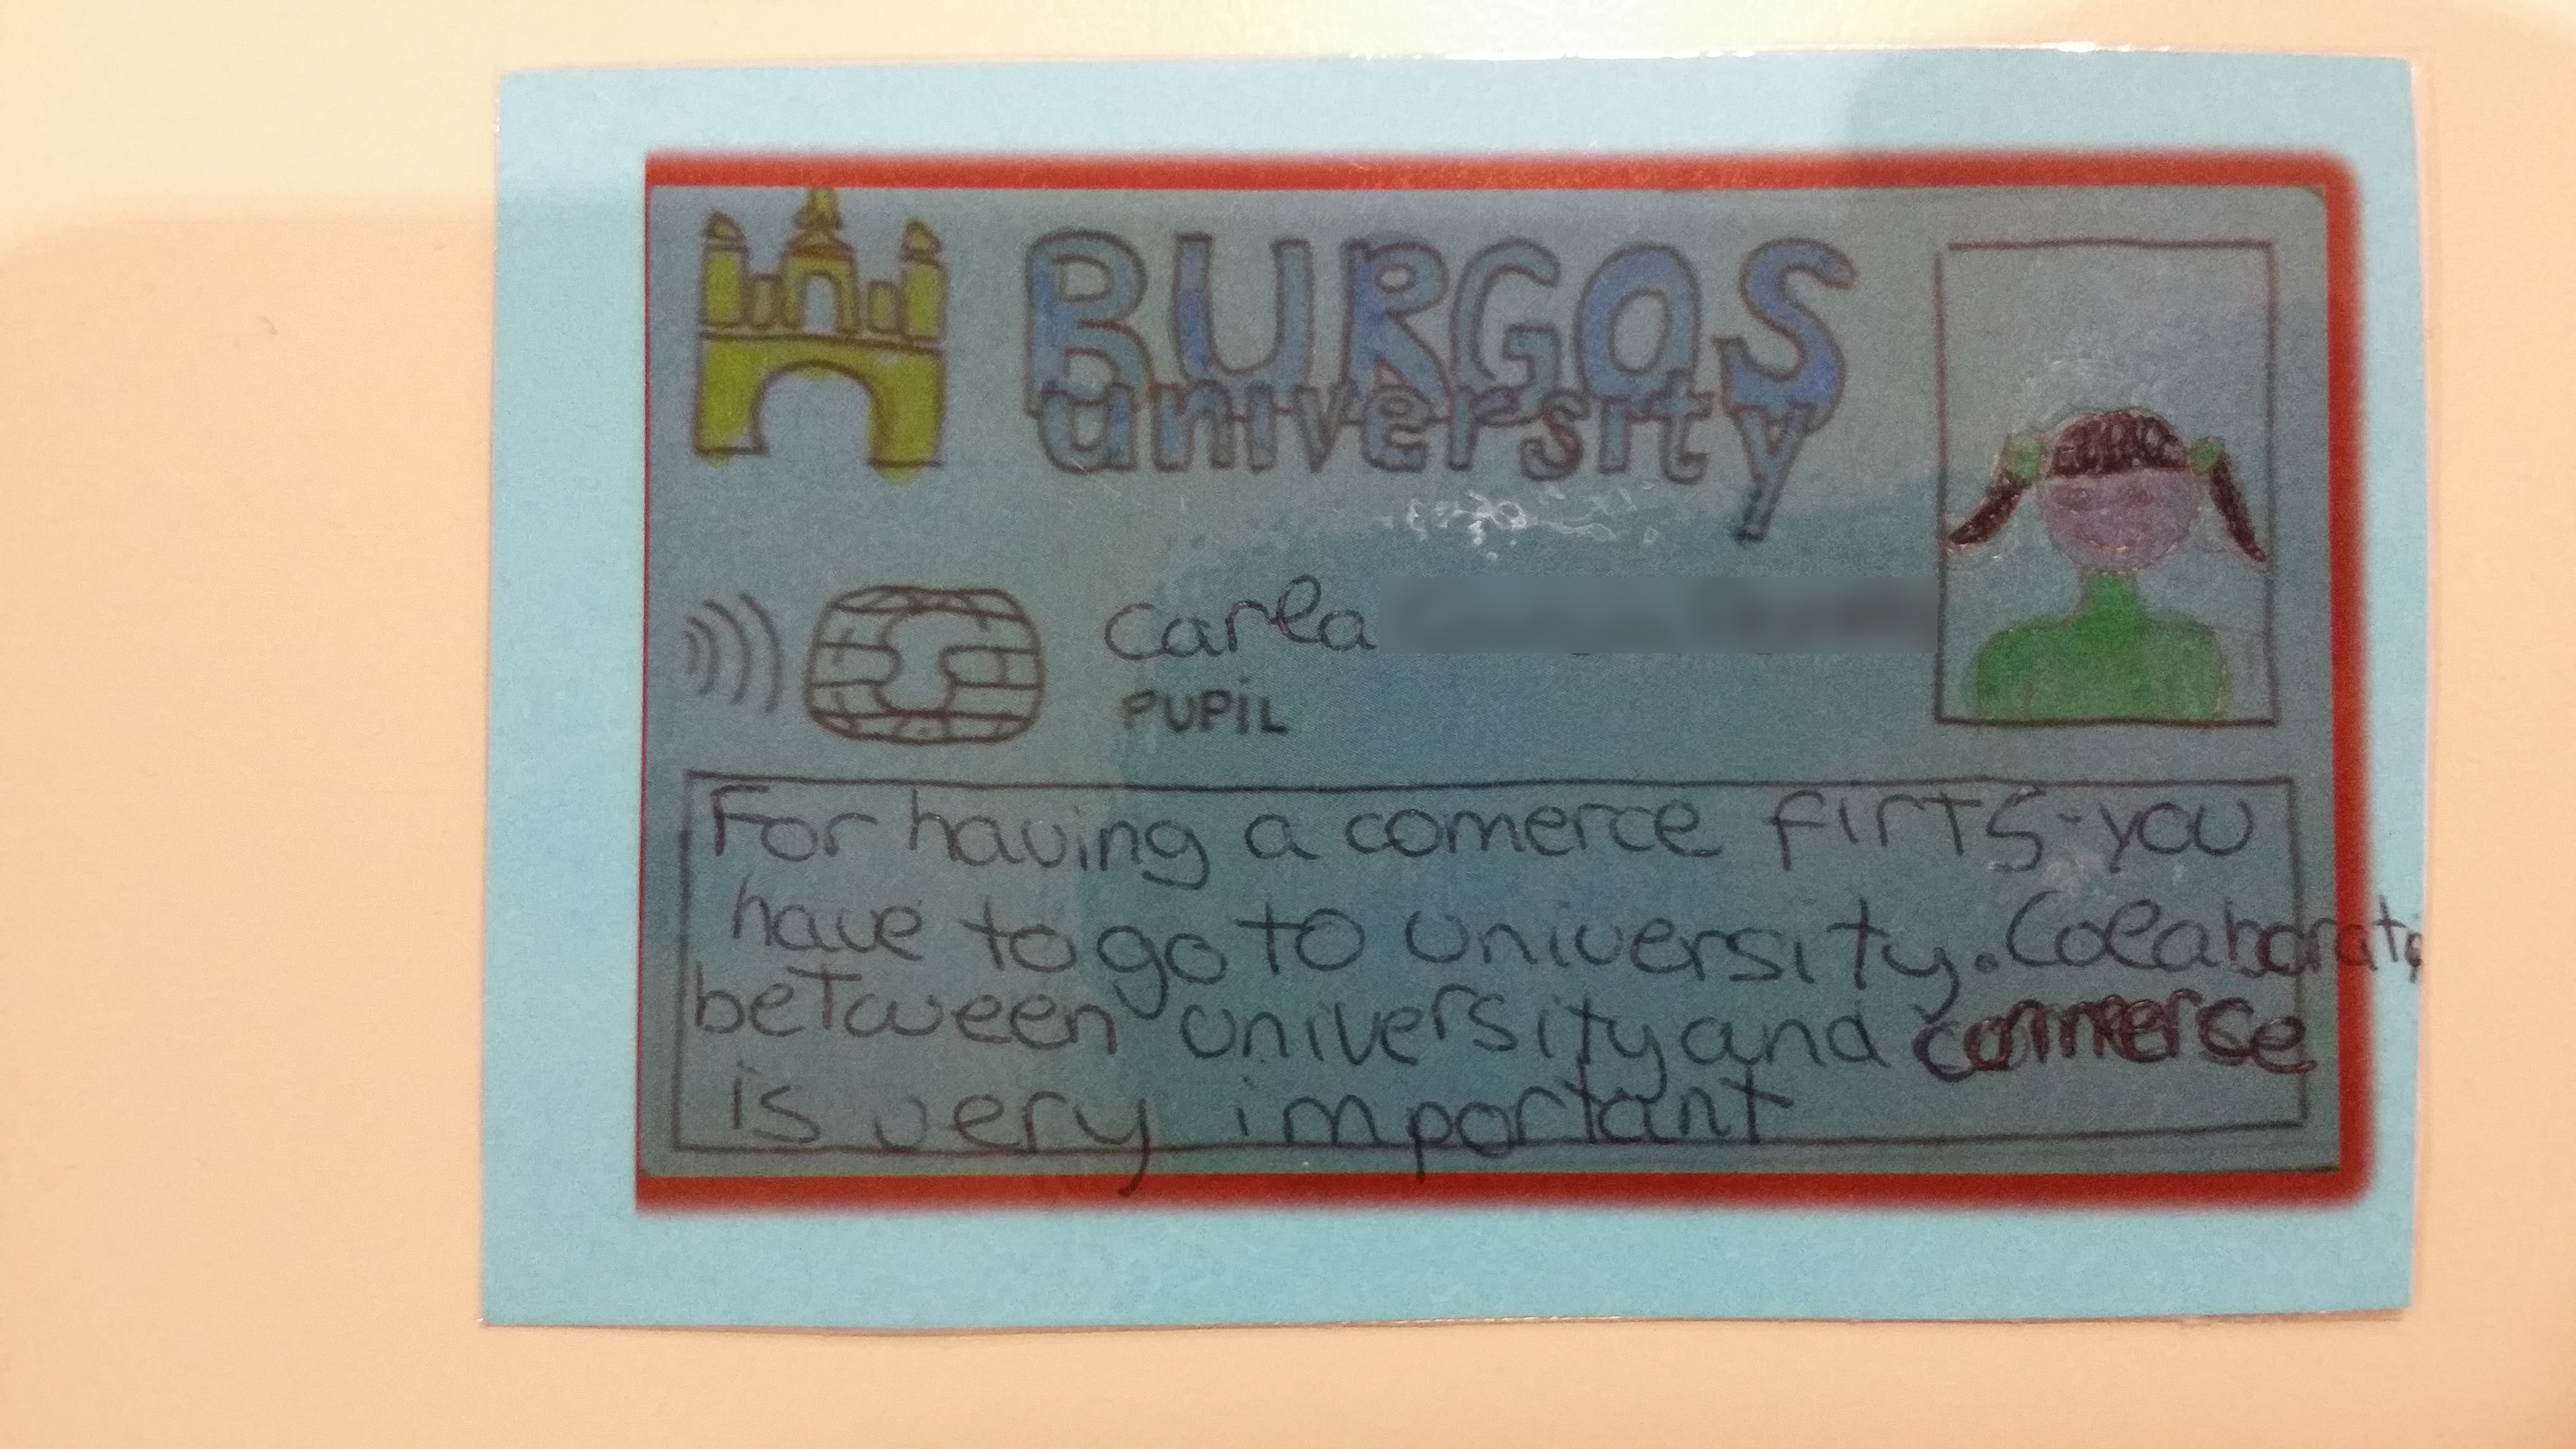 BURGOS
university
Carla
PUPIL
For having a comerce firTS-you
have to go to university. Colaborate
beTween university and commerse
is very important